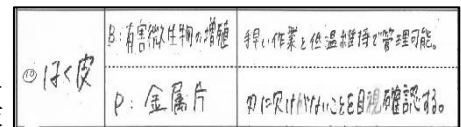 ⑩はく皮
B:有害微生物の増殖
早い作業と低温維持で管理可能。
P:金属片
刃に欠けがないことを目視確認する。